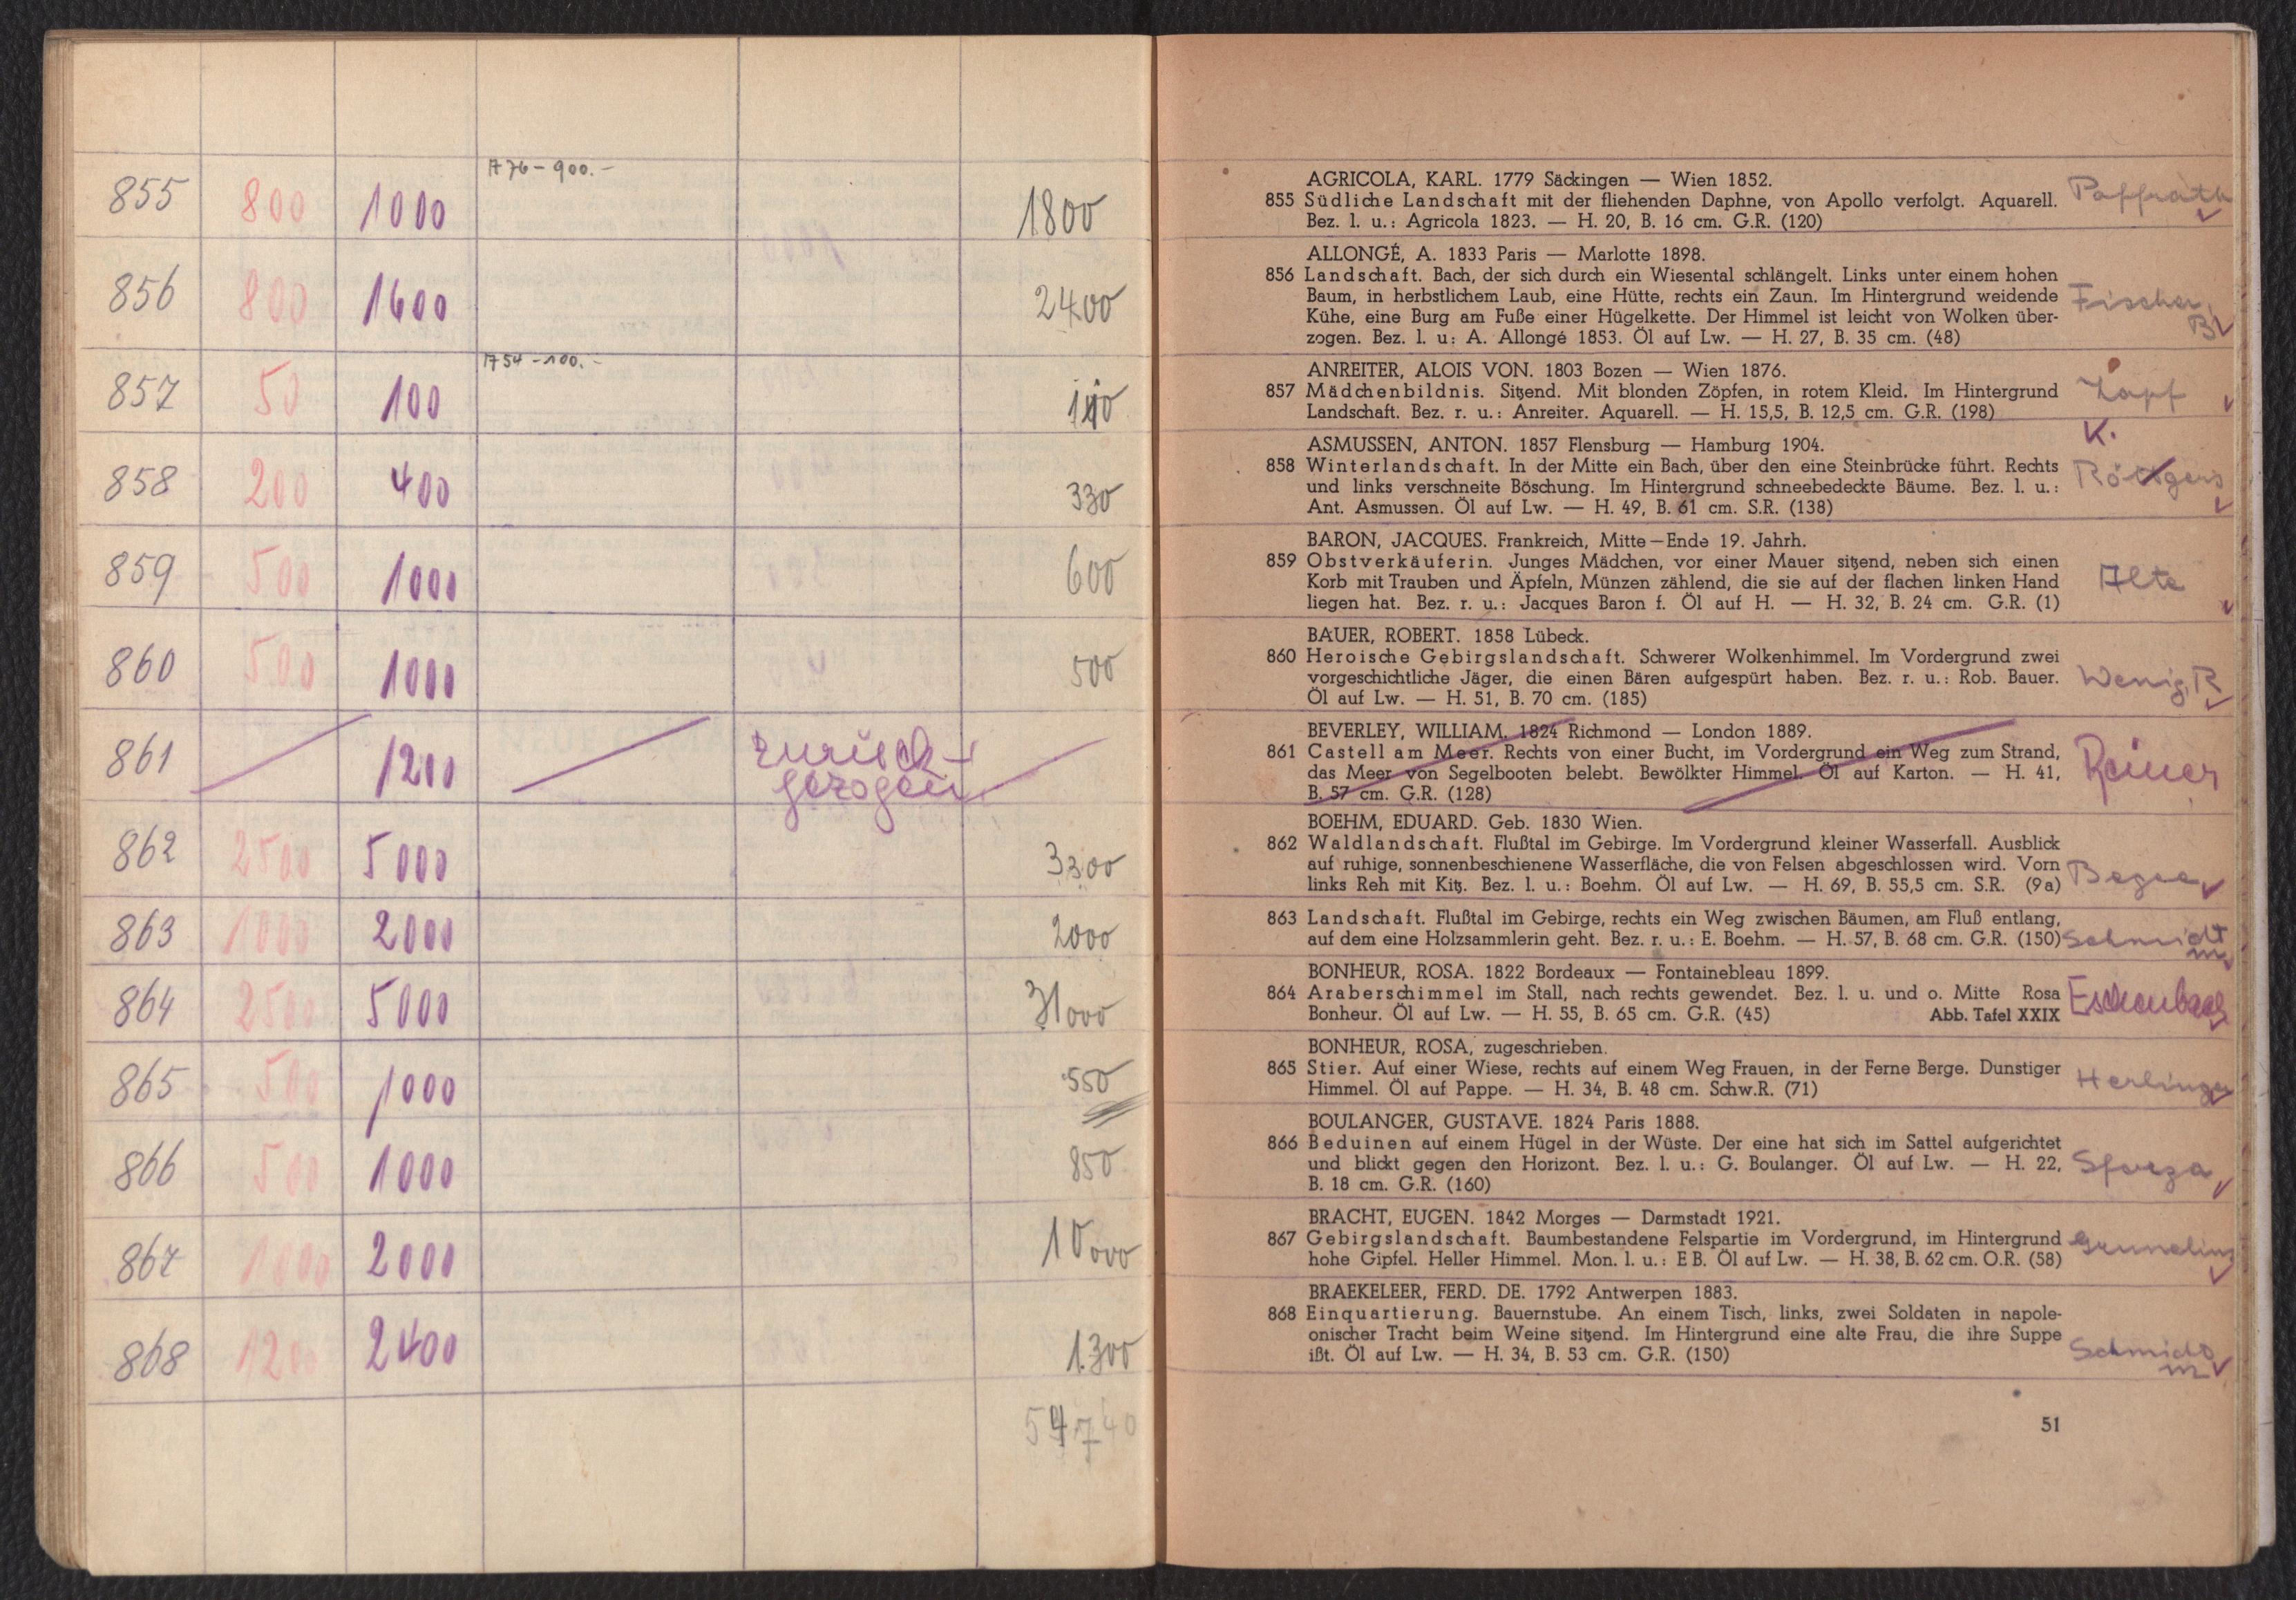 A 76 – 900.–
855 800 1000 1800
856 800 1600 2400
A 54 – 100.–
857 50 100 110
858 200 400 330
859 500 1000 600
860 500 1000 500
861 1200 zurück-
gezogen
862 2500 5000 3300
863 1000 2000 2000
864 2500 5000 31000
865 500 1000 550
866 500 1000 850
867 1000 2000 10000
868 1200 2400 1300
54740
AGRICOLA, KARL. 1779 Säckingen — Wien 1852.
855 Südliche Landschaft mit der fliehenden Daphne, von Apollo verfolgt. Aquarell.
Bez. l. u.: Agricola 1823. — H. 20, B. 16 cm. G.R. (120)
Paffrath
ALLONGÉ, A. 1833 Paris — Marlotte 1898.
856 Landschaft. Bach, der sich durch ein Wiesental schlängelt. Links unter einem hohen
Baum, in herbstlichem Laub, eine Hütte, rechts ein Zaun. Im Hintergrund weidende
Kühe, eine Burg am Fuße einer Hügelkette. Der Himmel ist leicht von Wolken über-
zogen. Bez. l. u: A. Allongé 1853. Öl auf Lw. — H. 27, B. 35 cm. (48)
Fischer,
B
ANREITER, ALOIS VON. 1803 Bozen — Wien 1876.
857 Mädchenbildnis. Sitzend. Mit blonden Zöpfen, in rotem Kleid. Im Hintergrund
Landschaft. Bez. r. u.: Anreiter. Aquarell. — H. 15,5, B. 12,5 cm. G.R. (198)
Zapf
K.
ASMUSSEN, ANTON. 1857 Flensburg — Hamburg 1904.
858 Winterlandschaft. In der Mitte ein Bach, über den eine Steinbrücke führt. Rechts
und links verschneite Böschung. Im Hintergrund schneebedeckte Bäume. Bez. l. u.:
Ant. Asmussen. Öl auf Lw. — H. 49, B. 61 cm. S.R. (138)
Röttgers
BARON, JACQUES. Frankreich, Mitte—Ende 19. Jahrh.
859 Obstverkäuferin. Junges Mädchen, vor einer Mauer sitzend, neben sich einen
Korb mit Trauben und Äpfeln, Münzen zählend, die sie auf der flachen linken Hand
liegen hat. Bez. r. u.: Jacques Baron f. Öl auf H. — H. 32, B. 24 cm. G.R. (1)
Alte
BAUER, ROBERT. 1858 Lübeck.
860 Heroische Gebirgslandschaft. Schwerer Wolkenhimmel. Im Vordergrund zwei
vorgeschichtliche Jäger, die einen Bären aufgespürt haben. Bez. r. u.: Rob. Bauer.
Öl auf Lw. — H. 51, B. 70 cm. (185)
Wenig, R
BEVERLEY, WILLIAM. 1824 Richmond — London 1889.
861 Castell am Meer. Rechts von einer Bucht, im Vordergrund ein Weg zum Strand,
das Meer von Segelbooten belebt. Bewölkter Himmel. Öl auf Karton. — H. 41,
B. 57 cm. G.R. (128)
Reiner
BOEHM, EDUARD. Geb. 1830 Wien.
862 Waldlandschaft. Flußtal im Gebirge. Im Vordergrund kleiner Wasserfall. Ausblick
auf ruhige, sonnenbeschienene Wasserfläche, die von Felsen abgeschlossen wird. Vorn
links Reh mit Kitz. Bez. l. u.: Boehm. Öl auf Lw. — H. 69, B. 55,5 cm. S.R. (9a)
863 Landschaft. Flußtal im Gebirge, rechts ein Weg zwischen Bäumen, am Fluß entlang,
auf dem eine Holzsammlerin geht. Bez. r. u.: E. Boehm. — H. 57, B. 68 cm. G.R. (150)
Schmidt
m
BONHEUR, ROSA. 1822 Bordeaux — Fontainebleau 1899.
864 Araberschimmel im Stall, nach rechts gewendet. Bez. l. u. und o. Mitte Rosa
Bonheur. Öl auf Lw. — H. 55, B. 65 cm. G.R. (45) Abb. Tafel XXIX
Eschenbach
BONHEUR, ROSA, zugeschrieben.
865 Stier. Auf einer Wiese, rechts auf einem Weg Frauen, in der Ferne Berge. Dunstiger
Himmel. Öl auf Pappe. — H. 34, B. 48 cm. Schw.R. (71)
Herlinger
BOULANGER, GUSTAVE. 1824 Paris 1888.
866 Beduinen auf einem Hügel in der Wüste. Der eine hat sich im Sattel aufgerichtet
und blickt gegen den Horizont. Bez. l. u.: G. Boulanger. Öl auf Lw. — H. 22,
B. 18 cm. G.R. (160)
Sforza
BRACHT, EUGEN. 1842 Morges — Darmstadt 1921.
867 Gebirgslandschaft. Baumbestandene Felspartie im Vordergrund, im Hintergrund
hohe Gipfel. Heller Himmel. Mon. l. u.: E B. Öl auf Lw. — H. 38, B. 62 cm. O.R. (58)
BRAEKELEER, FERD. DE. 1792 Antwerpen 1883.
868 Einquartierung. Bauernstube. An einem Tisch, links, zwei Soldaten in napole-
onischer Tracht beim Weine sitzend. Im Hintergrund eine alte Frau, die ihre Suppe
ißt. Öl auf Lw. — H. 34, B. 53 cm. G.R. (150)
Schmidt
m
51